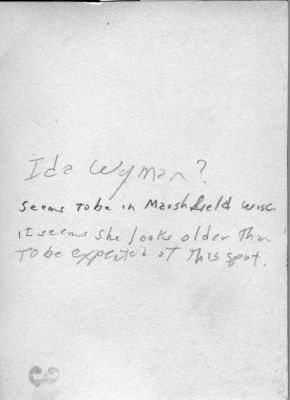 Ida Wyman?
Seems to be in Marshfield Wisc.
it seems she looks older than
to be expected at this spot.